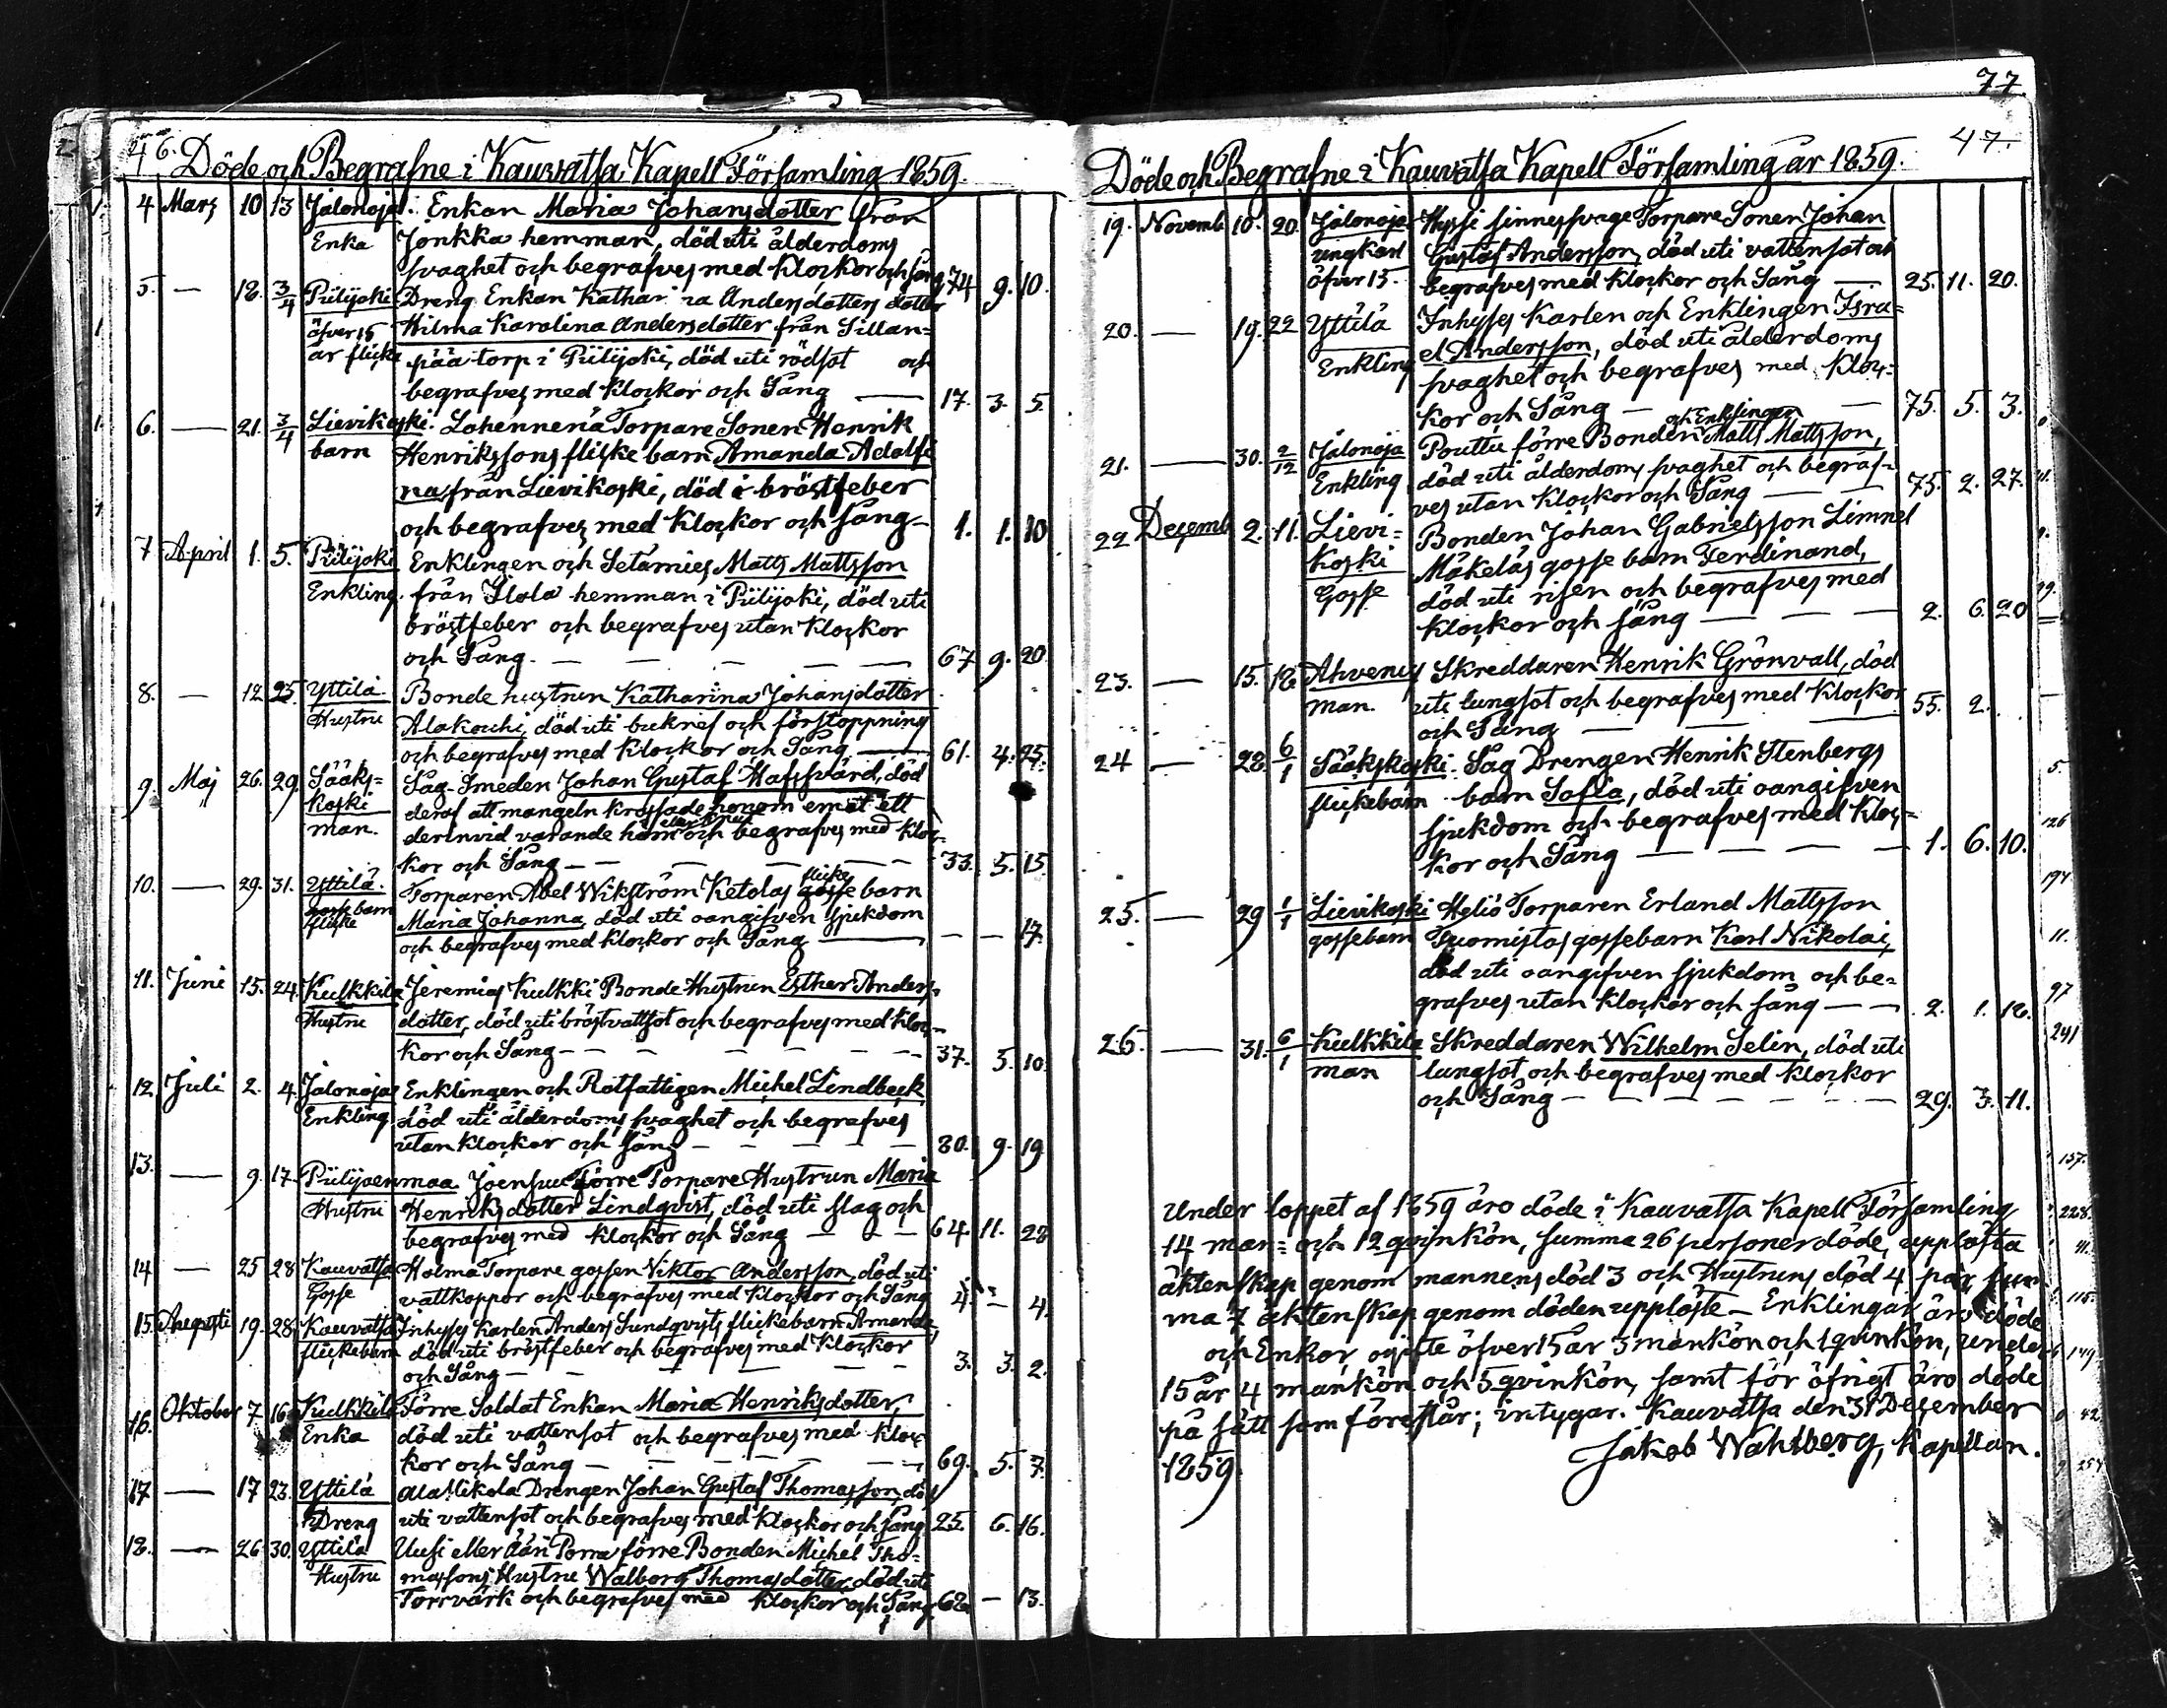 46. Döde och Begrafne i Kauvatsa Kapell Församling 1859.
4 Mars 10 13 Jalonoja. Enkan Maria Johansdotter från
Enka Jonkka hemman, död uti ålderdoms
svaghet och begrafves med Klockor och sång 74 9. 10.
5. — 18. 3/4 Piilijoki Dreng Enkan Katharina Andersdotters dotter
öfver 15 Hilma Karolina Andersdotter från Sillan=
år flicka pää torp i Piilijoki, död uti rödsot och
begrafves med Klockor och Sång — 17. 3. 5.
6. — 21. 3/4 Lievikoski. Lahennenä Torpare Sonen Henrik
barn Henrikssons flicke barn Amanda Adolfi
na från Lievikoski, död i bröstfeber
och begrafves med Klockor och sång — 1. 1. 10
7 April 1. 5. Piilijoki Enklingen och Setämies Matts Mattsson
Enkling. från Ilola hemman i Piilijoki, död uti
bröstfeber och begrafves utan Klockor
och Sång. — — — — — 67 9. 20
8. — 12 25. Yttilä Bonde hustrun Katharina Johansdotter
Hustru Alakouhi, död uti bukref och förstoppning
och begrafves med Klockor och Sång — 61. 4. 25.
9. Maj 26. 29. Sääks= Såg-Smeden Johan Gustaf Hafssvärd, död
koski deraf att mangeln krossade honom emot ett
man. derinvid varande hörn och begrafves med Kloc-
kor och Sång — — — — — 33. 5. 15
10. — 29. 31. Yttilä. Torparen Abel Wikström Ketolas flicke gosse barn
gosse barn flicke Maria Johanna, död uti oangifven Sjukdom
och begrafves med Klockor och Sång — — — 17.
11. Juni 15. 24. Kulkkila Jeremias Kulkki Bonde Hustrun Esther Anders-
Hustru dotter, död uti bröstvattsot och begrafves med Kloc-
kor och Sång — — — — — 37. 5. 10
12. Juli 2. 4. Jalonoja Enklingen och Rotfattigen Michel Lindbeck
Enkling död uti ålderdoms svaghet och begrafves
utan Klockor och Sång — — — — 80. 9. 19
13. — 9. 17. Piilijoenmaa Joensuu Förre Torpare Hustrun Maria
Hustru Henriksdotter Lindqvist, död uti slag och
begrafves med Klockor och Sång — — — 64. 11. 28
14 — 25 28 Kauvatsa Holma Torpare gossen Viktor Andersson, död uti
Gosse vattkoppor och begrafves med Klockor och Sång 4. — 4.
15. Augusti 19. 28. Kauvatsa Inhyses Karlen Anders Sundqvists flickebarn Amanda,
flickebarn död uti bröstfeber och begrafves med Klockor
och Sång — — — — 3. 3. 2.
16. Oktober 7 16 Kulkkila Förre Soldat Enkan Maria Henriksdotter,
Enka död uti vattensot och begrafves med Kloc-
kor och Sång — — — — — 69. 5. 7.
17 — 17 23. Yttilä Ala Nikola Drengen Johan Gustaf Thomasson, död
Dreng uti vattensot och begrafves med Klockor och sång 25. 6. 16.
18. — 26 30. Yttilä Uusi eller Ääri Porra förre Bonden Michel Tho-
Hustru massons Hustru Walborg Thomasdotter, död uti
Torrvärk och begrafves med Klockor och Sång 62 — 13.
77
47.
Döde och Begrafne i Kauvatsa Kapell Församling år 1859.
19. Novemb. 10. 20. Jalonoja Hyssi sinnessvage Torpare Sonen Johan
ungkarl Gustaf Andersson, död uti vattensot och
öfver 15. begrafves med Klockor och Sång — 25. 11. 20.
20. — 19. 22 Yttilä Inhyses Karlen och Enklingen Isra=
Enkling el Andersson, död uti ålderdoms
svaghet och begrafves med Kloc=
kor och Sång — — 75. 5. 3.
och Enklingen
21. — 30. 2/12 Jalonoja Pouttu förre Bonden Matts Mattsson,
Enkling död uti ålderdoms svaghet och begraf=
ves utan Klockor och Sång — — 75. 2. 27.
22 Decemb 2. 11. Lievi= Bonden Johan Gabrielsson Limnel
koski Mäkeläs gosse barn Ferdinand,
Gosse död uti risen och begrafves med
Klockor och sång — — — 2. 6. 20
23. — 15. 18. Ahvenus Skreddaren Henrik Grönvall, död
man. uti lungsot och begrafves med Klockor
och Sång — — — 55. 2.
24 — 28. 6/1 Sääkskoski. Såg Drengen Henrik Stenbergs
flickebarn barn Sofia, död uti oangifven
sjukdom och begrafves med Kloc=
kor och Sång — — — — 1. 6. 10.
25. — 29 1/1 Lievikoski Heliö Torparen Erland Mattsson
gossebarn Tuomistas gossebarn Karl Nikolai,
död uti oangifven sjukdom och be=
grafves utan Klockor och sång — — 2. 1. 18.
26. — 31. 6/1 Kulkkila Skreddaren Wilhelm Selin, död uti
man lungsot, och begrafves med Klockor
och Sång — — — — — 29. 3. 11.
Under loppet af 1859 äro döde i Kauvatsa Kapell Församling
14 man= och 12 qvinkön, summa 26 personer döde, upplösta
äktenskap genom mannens död 3 och Hustruns död 4 par, sum=
ma 7 äktenskap genom döden upplöste — Enklingar äro döde
och Enkor, ogifte öfver 15 år 3 mankön och 1 qvinkön, under
15 år 4 mankön och 5 qvinkön, samt för öfrigt äro döde
på sätt som förestår; intygar. Kauvatsa den 31 December
1859. Jakob Wahlberg, Kapellan.